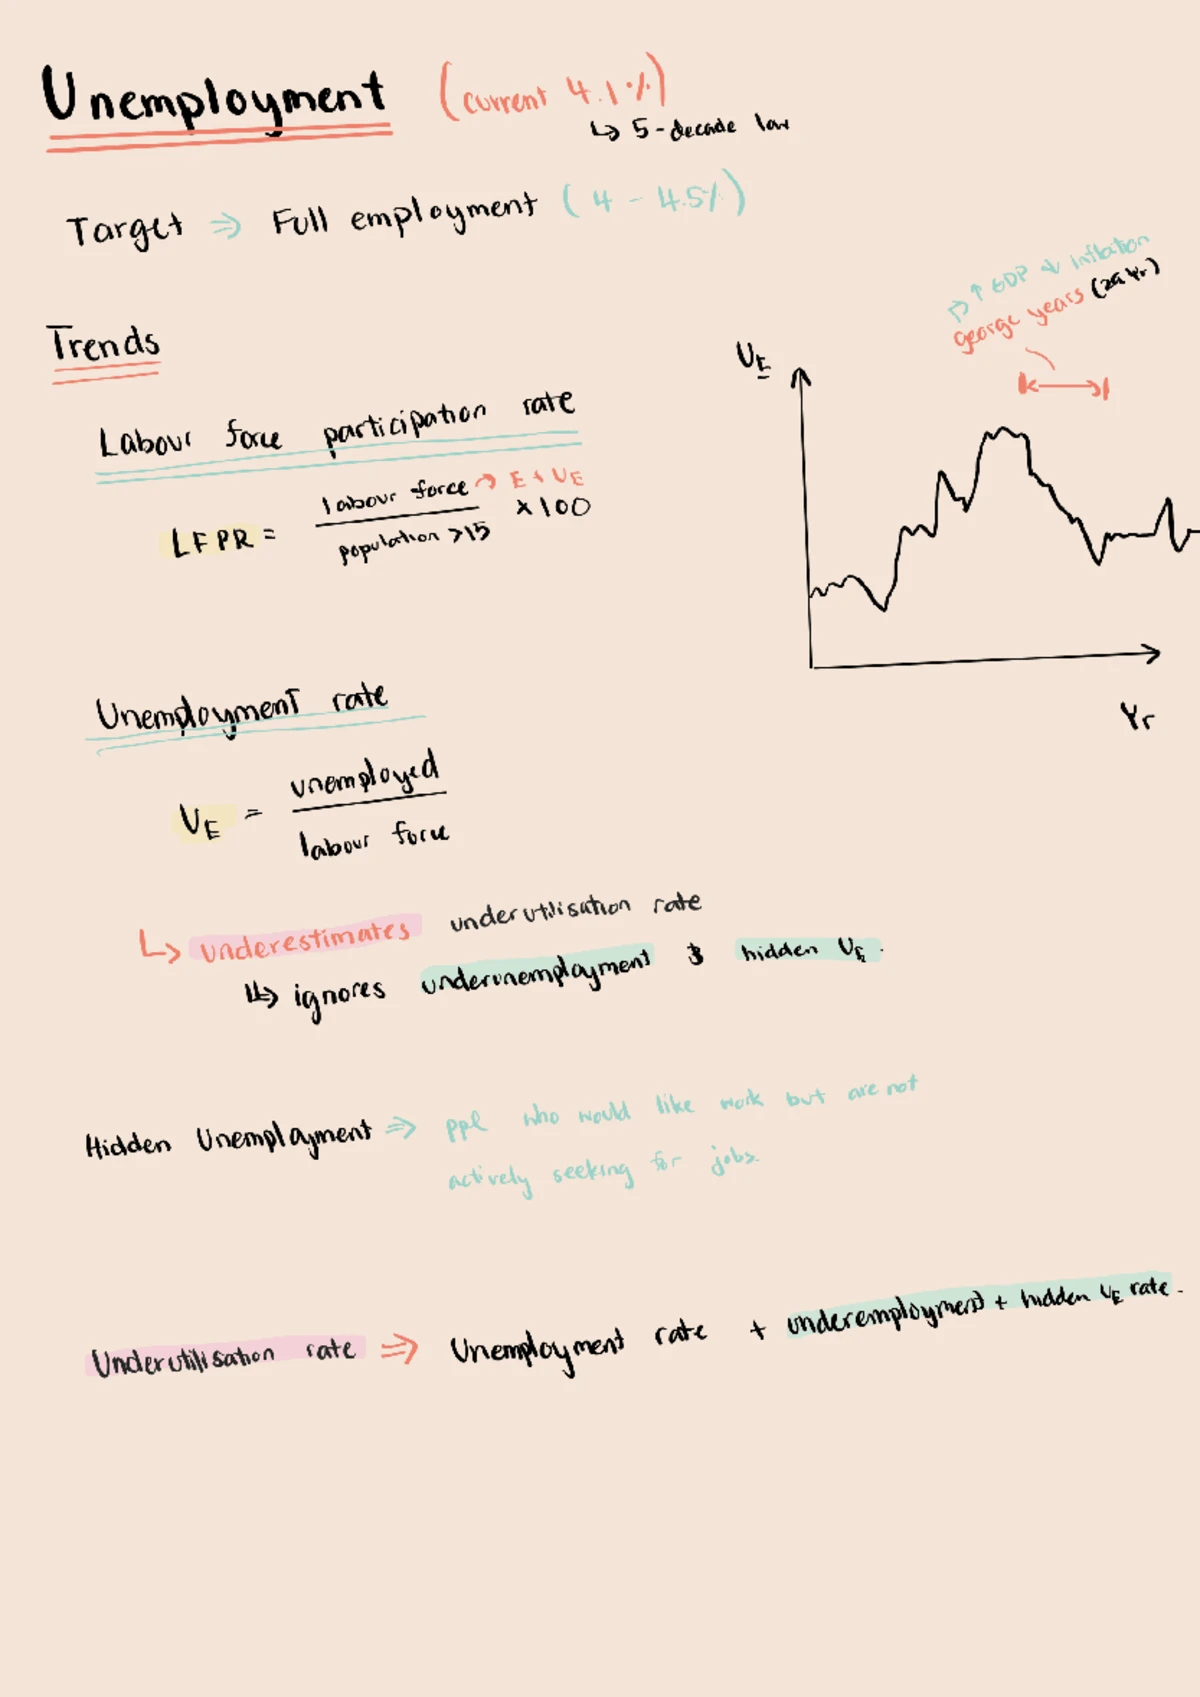 Unemployment (current 4.1%)
↳ 5-decade low
Target ⇒ Full employment (4 - 4.5%)
↳ ↑ GDP ↓ inflation
george years (29 yr)
Trends
Labour force participation rate
LFPR = labour force → E + UE
population >15 × 100
UE
Yr
Unemployment rate
UE = unemployed
labour force
↳ underestimates underutilisation rate
↳ ignores underunemployment & hidden UE.
Hidden Unemployment ⇒ ppl who would like work but are not
actively seeking for jobs.
Underutilisation rate ⇒ Unemployment rate + underemployment + hidden UE rate.